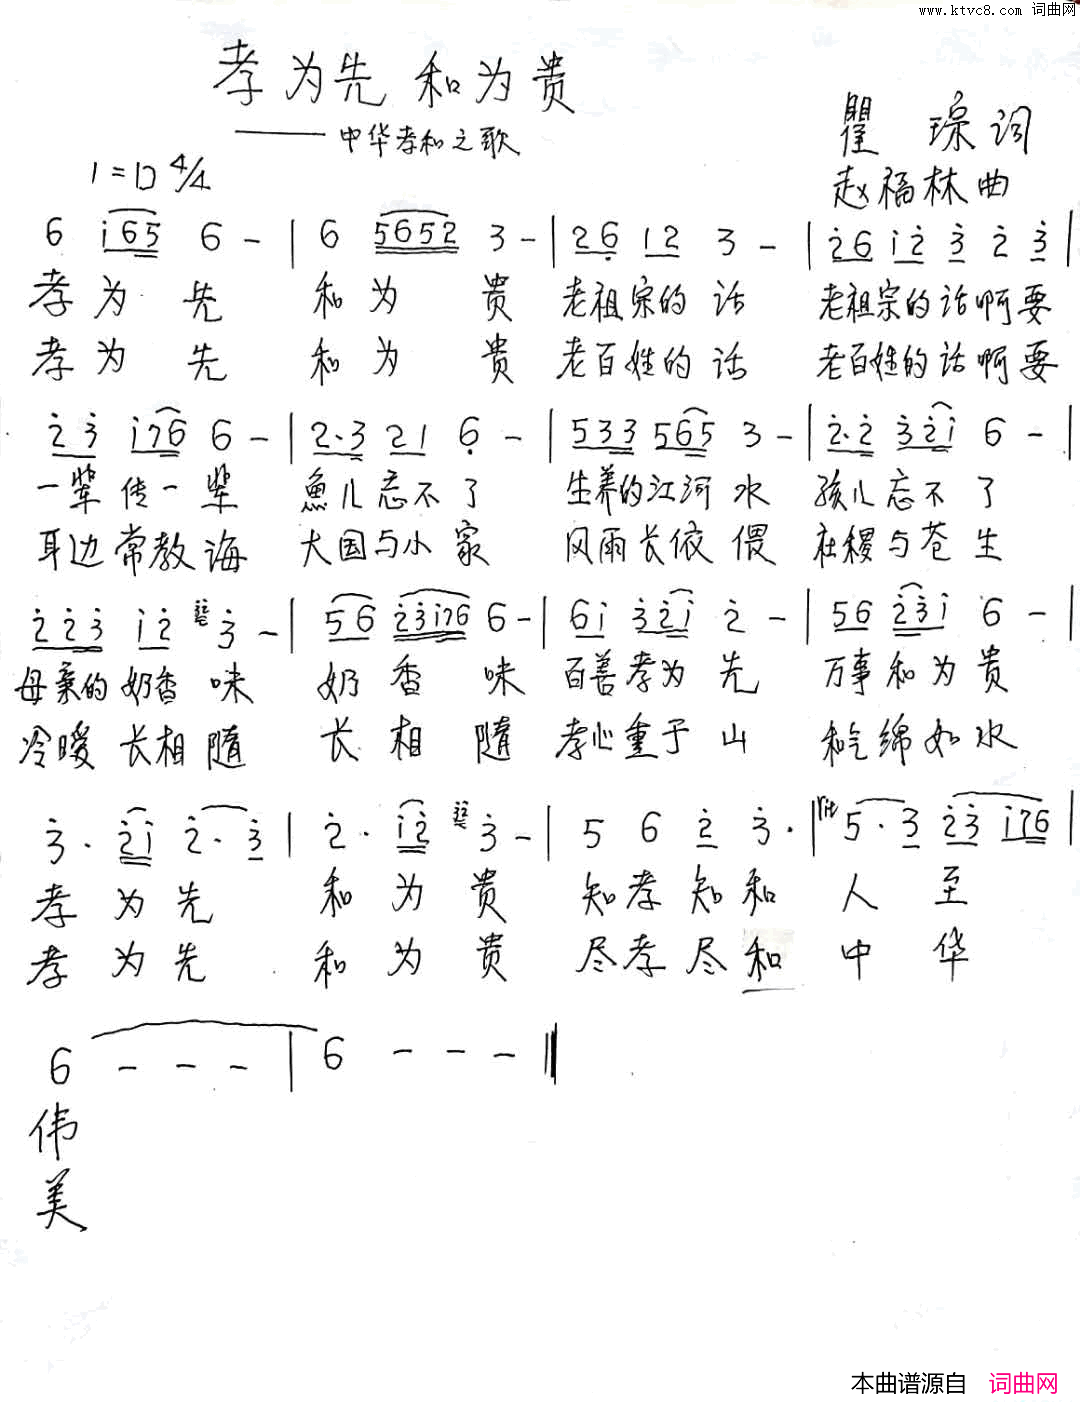 www.ktvc8.com 词曲网
孝为先 和为贵
——中华孝和之歌
瞿琮词
1=D 4/4
赵福林曲
6 i65 6 - | 6 5652 3 - | 26 12 3 - | 26 i2 3 2 3 |
孝为先 和为贵 老祖宗的话 老祖宗的话啊要
孝为先 和为贵 老百姓的话 老百姓的话啊要
23 i76 6 - | 2·3 21 6 - | 533 565 3 - | 2·2 32i 6 - |
一辈传一辈 魚儿忘不了 生养的江河水 孩儿忘不了
耳边常教诲 大国与小家 风雨长依偎 社稷与苍生
223 i2 3 - | 56 23i76 6 - | 6i 32i 2 - | 56 23i 6 - |
母亲的奶香味 奶香味 百善孝为先 万事和为贵
冷暖长相随 长相随 孝心重于山 和气绵如水
3· 2i 2·3 | 2· i2 3 - | 5 6 2 3· | rit 5·3 23 i76 |
孝为先 和为贵 知孝知和人至
孝为先 和为贵 尽孝尽和中华
6 - - - | 6 - - - ‖
伟
美
本曲谱源自 词曲网